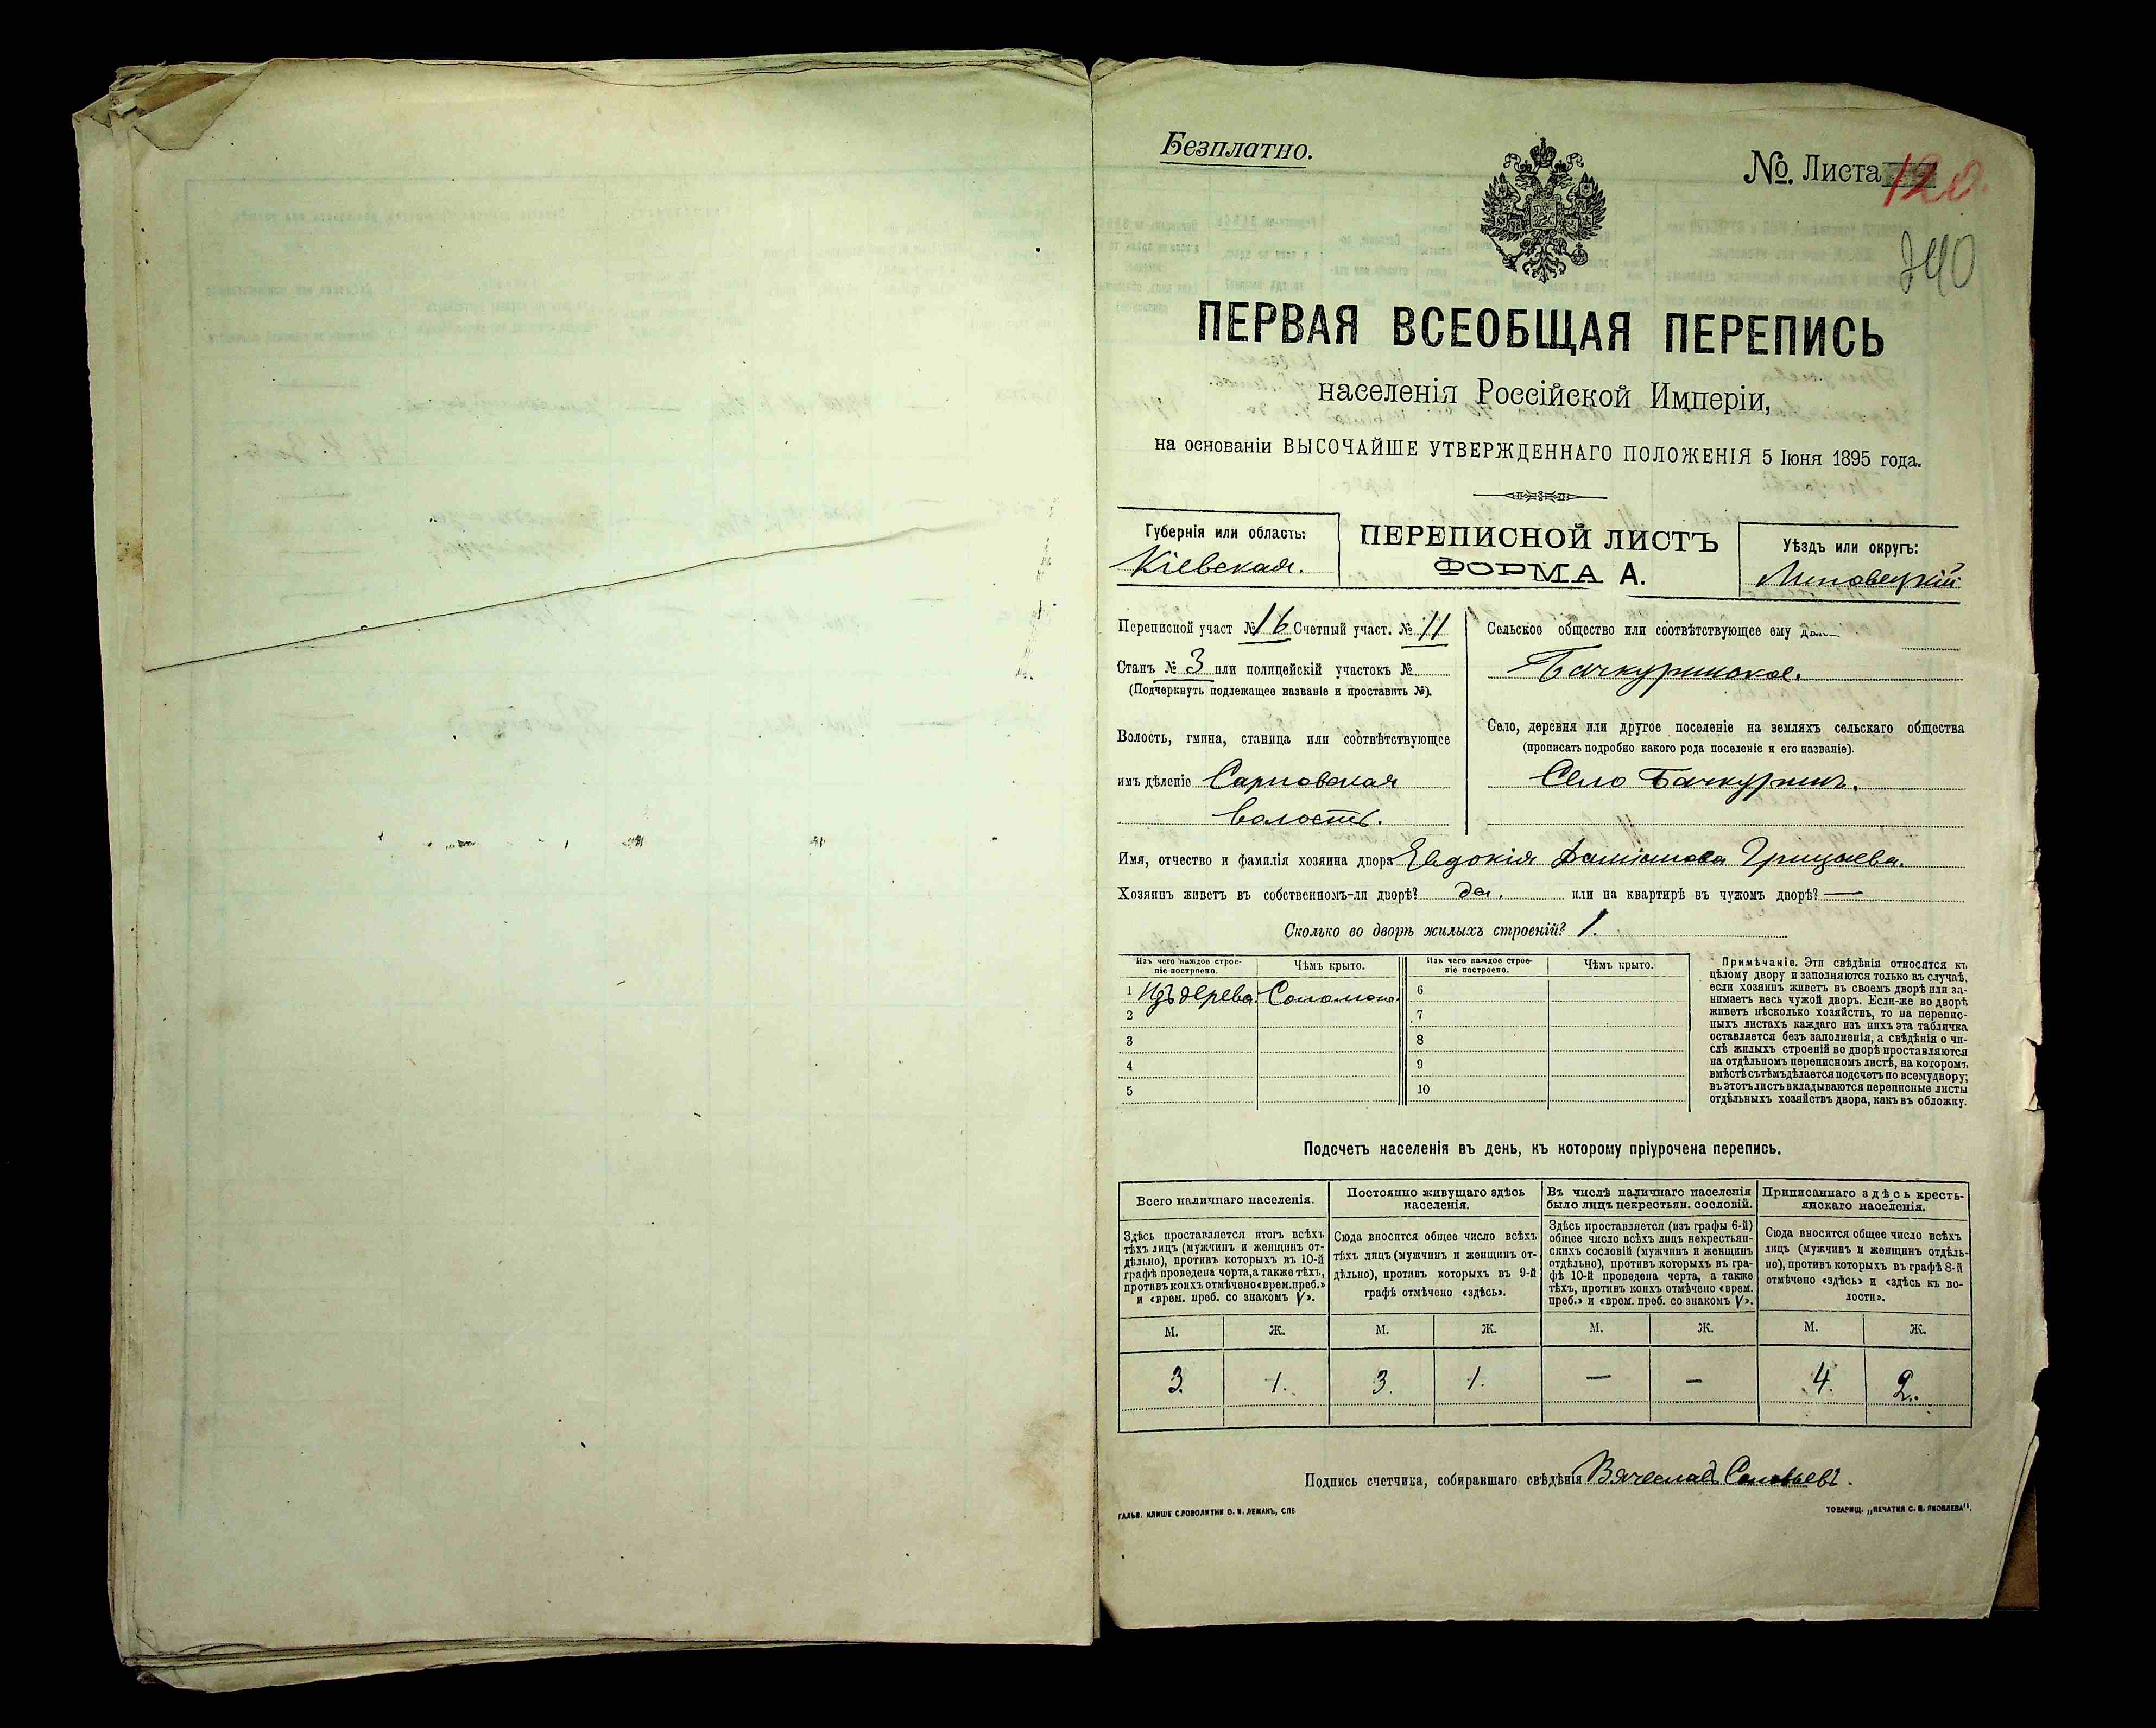 Безплатно.
№. Листа 120.
240
ПЕРВАЯ ВСЕОБЩАЯ ПЕРЕПИСЬ
населенія Россійской Имперіи,
на основаніи ВЫСОЧАЙШЕ УТВЕРЖДЕННАГО ПОЛОЖЕНІЯ 5 Іюня 1895 года.
Губернія или область:
Кіевская.
ПЕРЕПИСНОЙ ЛИСТЪ
ФОРМА А.
Уѣздъ или округъ:
Липовецкій
Переписной участ № 16 Счетный участ. № 11
Станъ № 3 или полицейскій участокъ №
(Подчеркнуть подлежащее названіе и проставить №).
Волость, гмина, станица или соотвѣтствующее
имъ дѣленіе Сарновская
волость.
Сельское общество или соотвѣтствующее ему
Бачкуринское.
Село, деревня или другое поселеніе на земляхъ сельскаго общества
(прописать подробно какого рода поселеніе и его названіе).
Село Бачкуринъ.
Имя, отчество и фамилія хозяина двора Евдокія Даміанова Грицаева.
Хозяинъ живетъ въ собственномъ-ли дворѣ? да. или на квартирѣ въ чужомъ дворѣ? —
Сколько во дворѣ жилыхъ строеній? 1.
Изъ чего каждое строе-
ніе построено.
Чѣмъ крыто.
Изъ чего каждое строе-
ніе построено.
Чѣмъ крыто.
1 Изъ дерева. Соломою. 6
2 7
3 8
4 9
5 10
Примѣчаніе. Эти свѣдѣнія относятся къ
цѣлому двору и заполняются только въ случаѣ,
если хозяинъ живетъ въ своемъ дворѣ или за-
нимаетъ весь чужой дворъ. Если-же во дворѣ
живетъ нѣсколько хозяйствъ, то на перепис-
ныхъ листахъ каждаго изъ нихъ эта табличка
оставляется безъ заполненія, а свѣдѣнія о чи-
слѣ жилыхъ строеній во дворѣ проставляются
на отдѣльномъ переписномъ листѣ, на которомъ
вмѣстѣ съ тѣмъ дѣлается подсчетъ по всему двору;
въ этотъ листъ вкладываются переписные листы
отдѣльныхъ хозяйствъ двора, какъ въ обложку.
Подсчетъ населенія въ день, къ которому пріурочена перепись.
Всего наличнаго населенія.
Здѣсь проставляется итогъ всѣхъ
тѣхъ лицъ (мужчинъ и женщинъ от-
дѣльно), противъ которыхъ въ 10-й
графѣ проведена черта, а также тѣхъ,
противъ коихъ отмѣчено «врем. преб.»
и «врем. преб. со знакомъ V».
Постоянно живущаго здѣсь
населенія.
Сюда вносится общее число всѣхъ
тѣхъ лицъ (мужчинъ и женщинъ от-
дѣльно), противъ которыхъ въ 9-й
графѣ отмѣчено «здѣсь».
Въ числѣ наличнаго населенія
было лицъ некрестьян. сословій.
Здѣсь проставляется (изъ графы 6-й)
общее число всѣхъ лицъ некрестьян-
скихъ сословій (мужчинъ и женщинъ
отдѣльно), противъ которыхъ въ гра-
фѣ 10-й проведена черта, а также
тѣхъ, противъ коихъ отмѣчено «врем.
преб.» и «врем. преб. со знакомъ V».
Приписаннаго здѣсь кресть-
янскаго населенія.
Сюда вносится общее число всѣхъ
лицъ (мужчинъ и женщинъ отдѣль-
но), противъ которыхъ въ графѣ 8-й
отмѣчено «здѣсь» и «здѣсь къ во-
лости».
М. Ж. М. Ж. М. Ж. М. Ж.
3. 1. 3. 1. — — 4. 2.
Подпись счетчика, собиравшаго свѣдѣнія Вячеславъ Соловьевъ.
ГАЛЬВ. КЛИШЕ СЛОВОЛИТНИ О. И. ЛЕМАНЪ, СПБ.
ТОВАРИЩ. „ПЕЧАТНЯ С. П. ЯКОВЛЕВА".